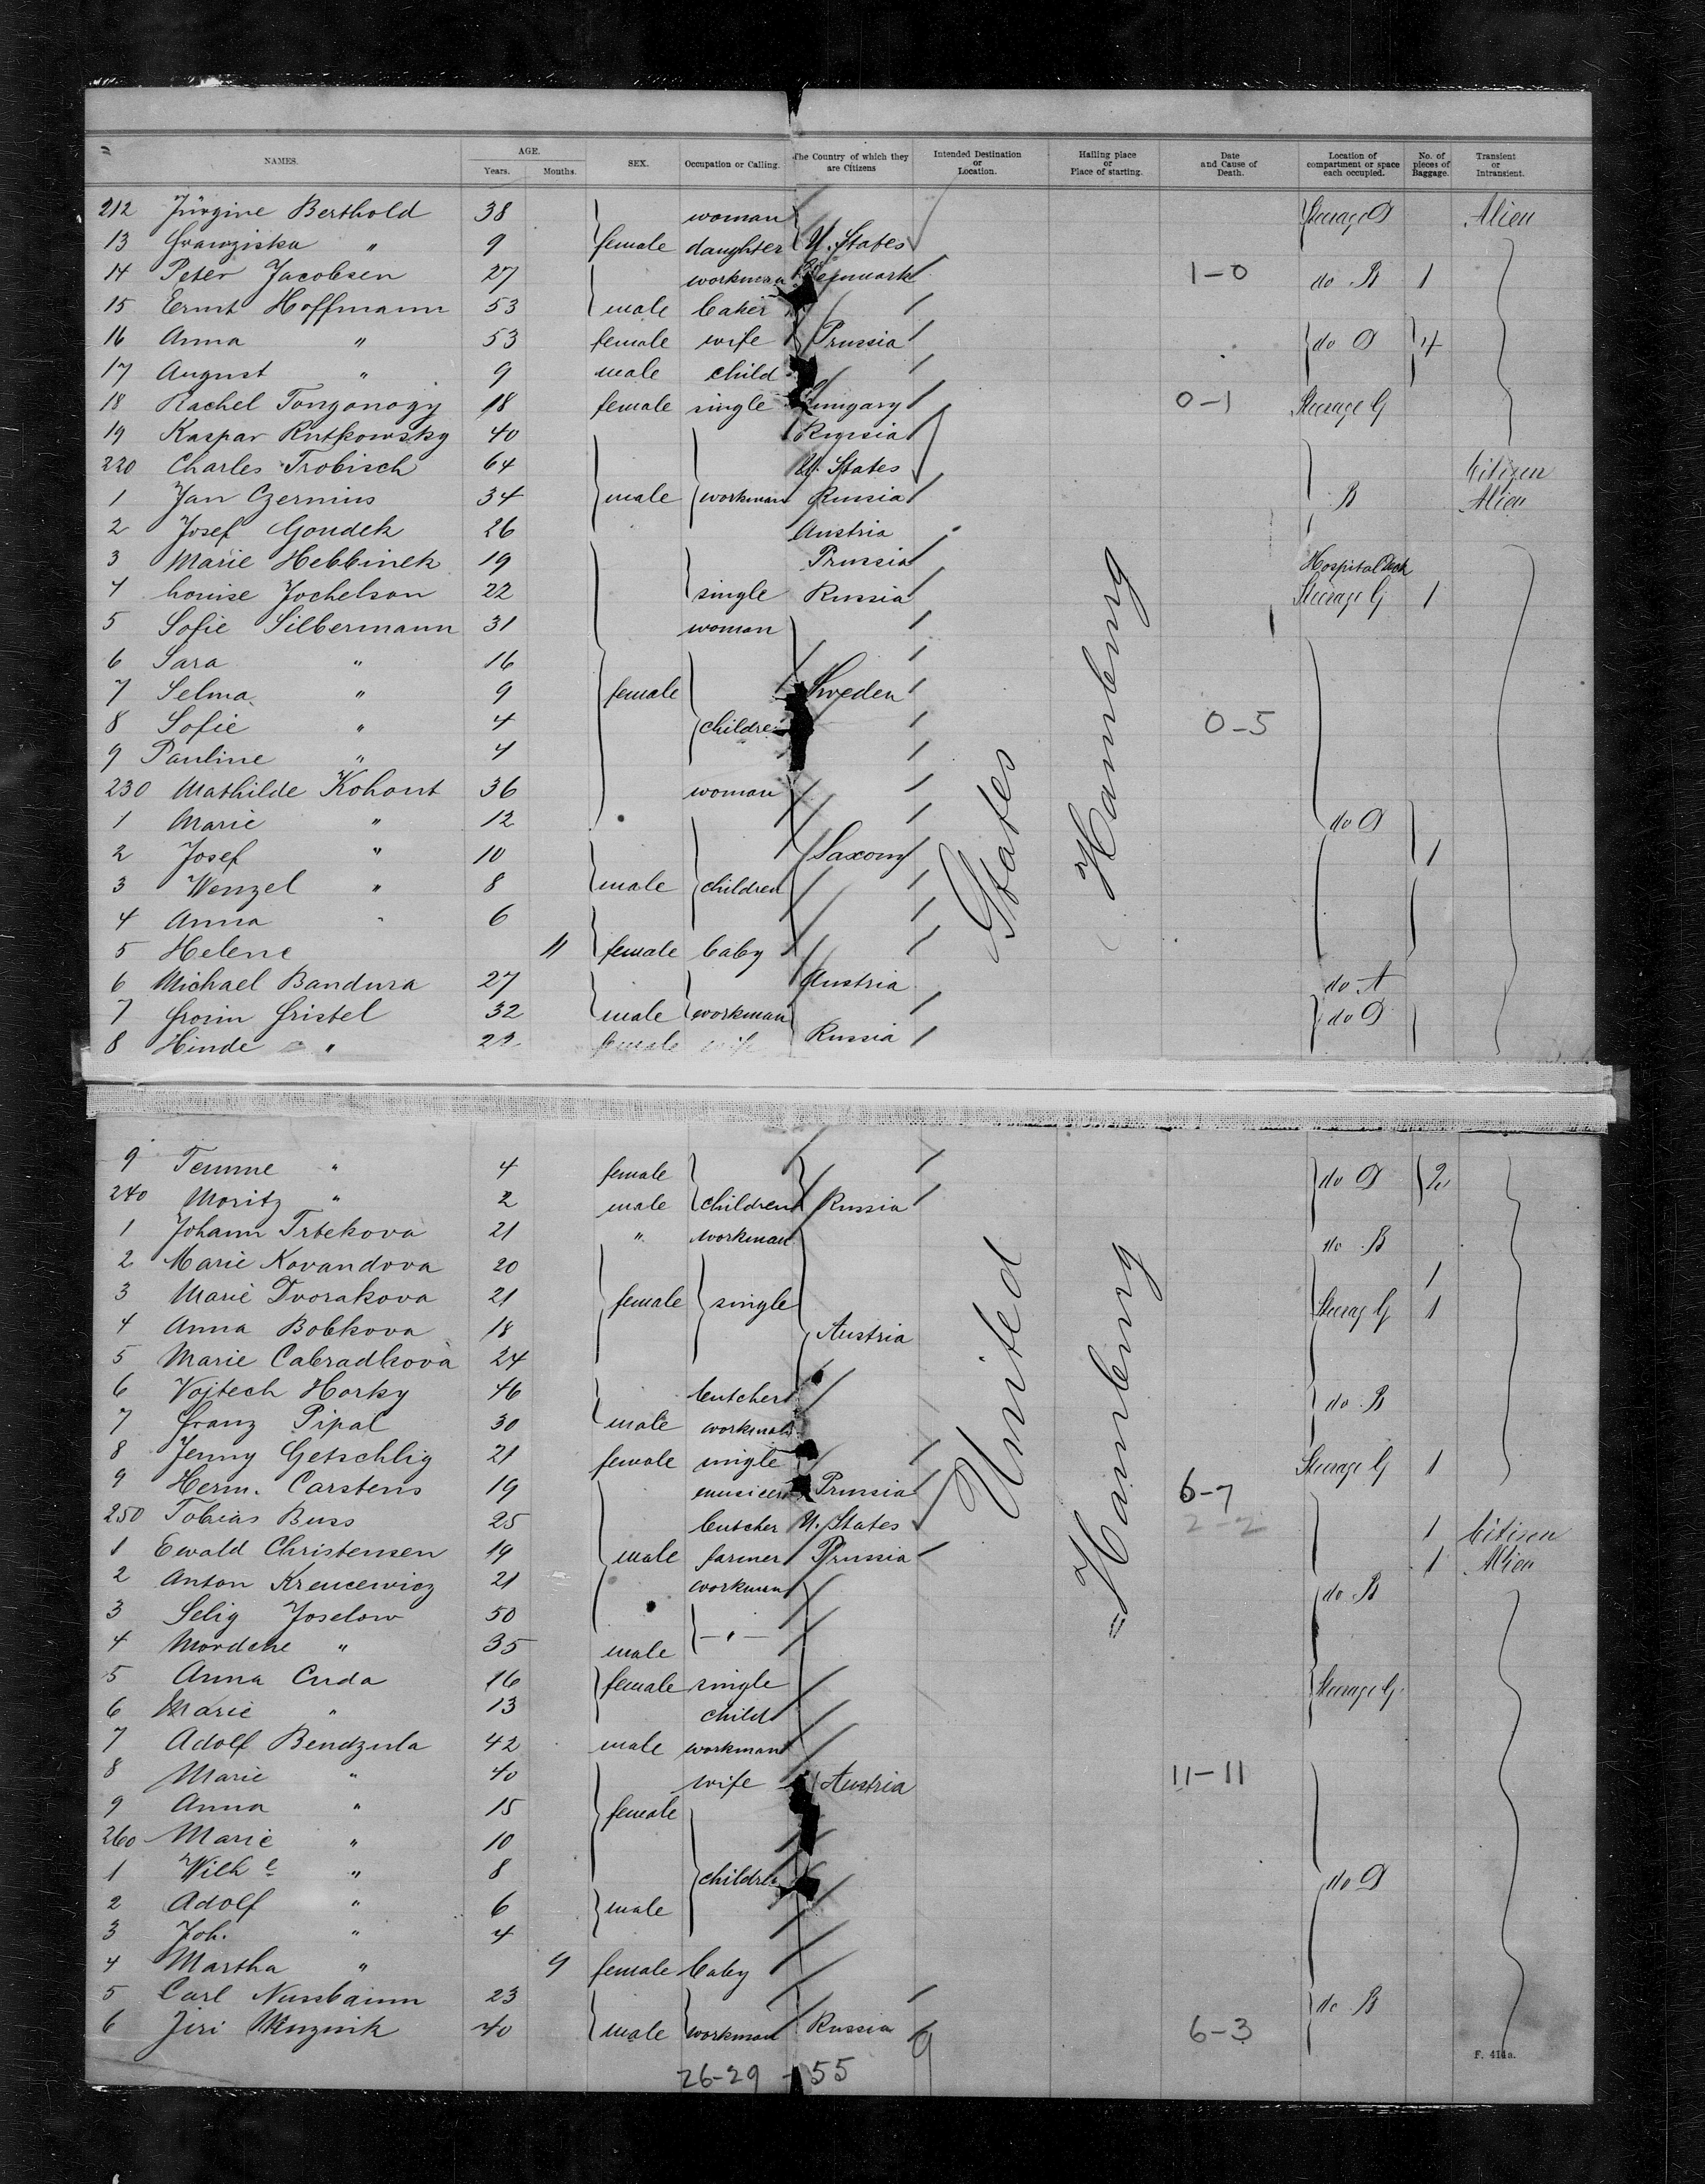 NAMES. AGE. Years. Months. SEX. Occupation or Calling. The Country of which they are Citizens Intended Destination or Location. Hailing place or Place of starting. Date and Cause of Death. Location of compartment or space each occupied. No. of pieces of Baggage. Transient or Intransient.
212 Jürgine Berthold 38 woman Steerage D Alien
13 Franziska " 9 female daughter U. States
14 Peter Jacobsen 27 workman Denmark 1-0 do B 1
15 Ernst Hoffmann 53 male baker
16 Anna " 53 female wife Prussia do D 4
17 August " 9 male child
18 Rachel Tongonogy 18 female single Hungary 0-1 Steerage G
19 Kaspar Rutkowsky 40 Russia
220 Charles Trobisch 64 U. States Citizen
1 Jan Czernius 34 male workman Russia B Alien
2 Josef Goudek 26 Austria
3 Marie Hebbinek 19 Prussia Hospital Deck
4 Louise Jochelson 22 single Russia Steerage G 1
5 Sofie Silbermann 31 woman
6 Sara " 16
7 Selma " 9 female Sweden
8 Sofie " 4 children 0-5
9 Pauline " 4
230 Mathilde Kohout 36 woman
1 Marie " 12 do D
2 Josef " 10 Saxony 1
3 Wenzel " 8 male children
4 Anna " 6
5 Helene 11 female baby
6 Michael Bandura 27 Austria do A
7 Froim Fristel 32 male workman do D
8 Hinde " 23 female wife Russia
States
Hamburg
9 Temme " 4 female do D 2
240 Moritz " 2 male children Russia
1 Johann Trbekova 21 " workman do B
2 Marie Kovandova 20 1
3 Marie Dvorakova 21 female single Steerag G 1
4 Anna Bobkova 18 Austria
5 Marie Cabradkova 24
6 Vojtech Horky 46 butcher do B
7 Franz Pipal 30 male workman
8 Jenny Getschlig 21 female single Steerage G 1
9 Herm. Carstens 19 Prussia 6-7
250 Tobias Buss 25 butcher U. States 2-2 1 Citizen
1 Ewald Christensen 19 male farmer Prussia 1 Alien
2 Anton Krencewicz 21 workman do B
3 Selig Joselow 50
4 Mordche " 35 male - " -
5 Anna Cuda 16 female single Steerage G
6 Marie " 13 child
7 Adolf Bendzula 42 male workman
8 Marie " 40 wife Austria 11-11
9 Anna " 15 female
260 Marie " 10
1 Wilh e " 8 children do D
2 Adolf " 6 male
3 Joh. " 4
4 Martha " 9 female baby
5 Carl Nussbaum 23 do B
6 Jiri Muznik 40 male workman Russia 6-3
United
Hamburg
F. 414a.
26-29 - 55